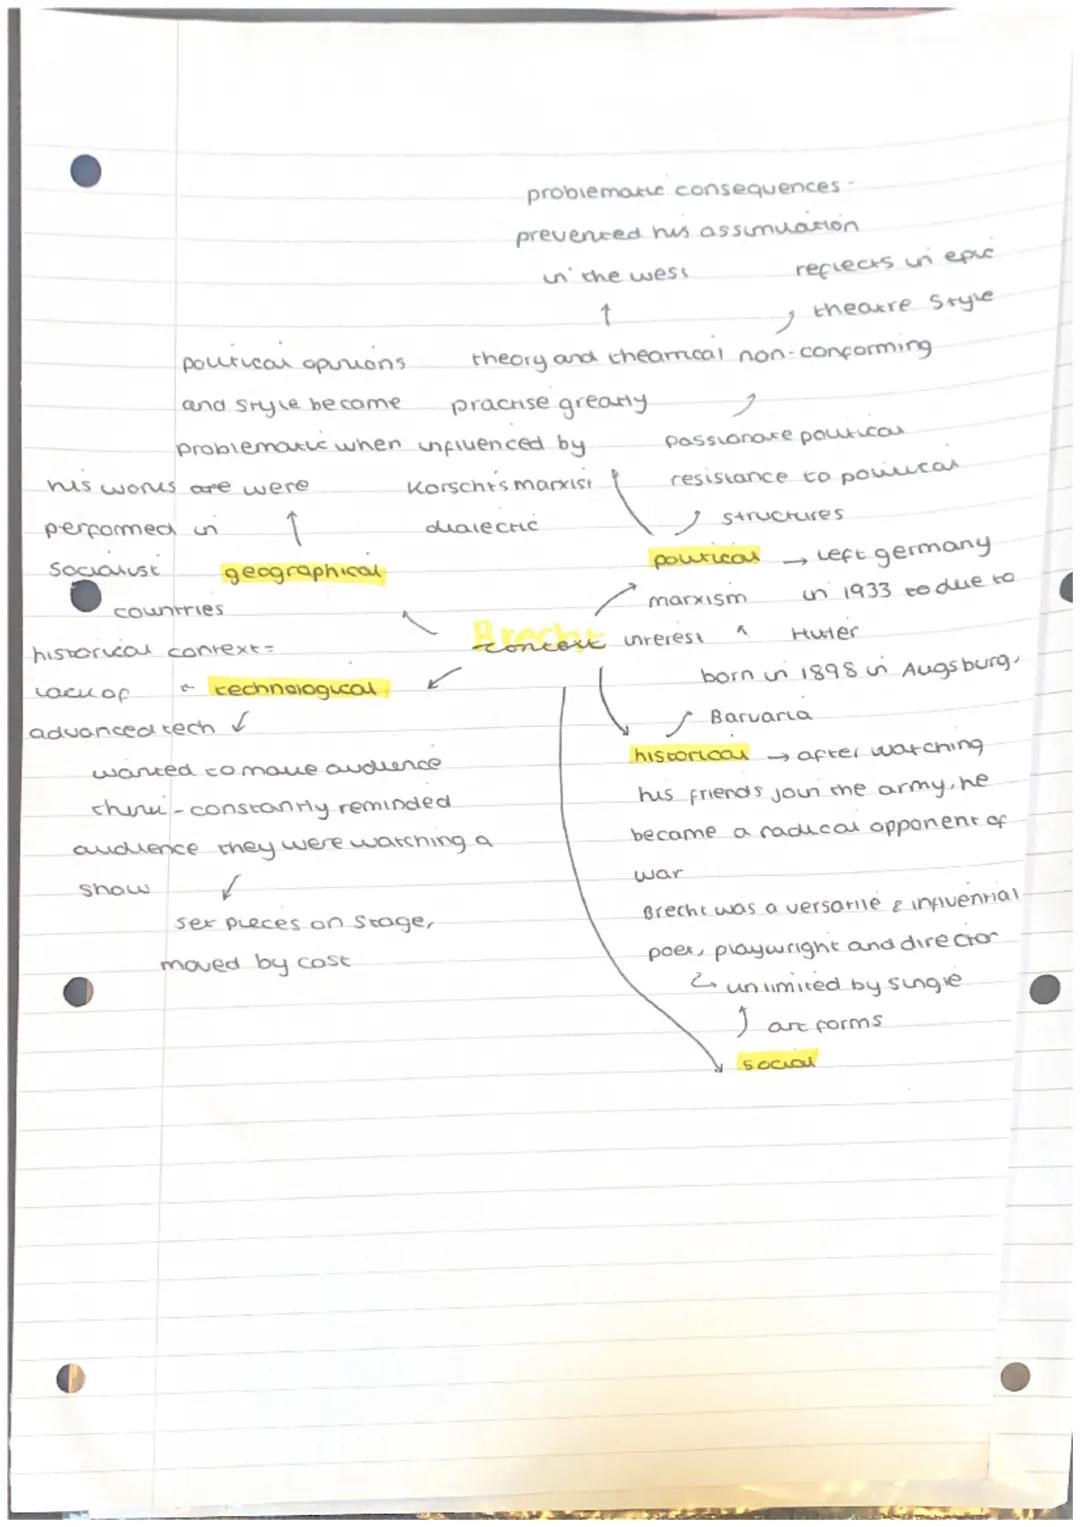 problematic consequences -
prevented his assimilation
in the west
reflects in epic
theatre style
theory and theatrical non-conforming
practise greatly
influenced by
Korscht's marxist
dialectic
political opinions
and style become
problematic when
his works are were
performed in
socialist
countries
geographical
passionate political
resistance to political
structures
political → left germany
in 1933 to due to
Hitler
marxism
interest
Brecht
context
born in 1898 in Augsburg,
Barvaria
historical → after watching
his friends join the army, he
became a radical opponent of
war
historical context =
lack of
advanced tech
technological
wanted to make audience
think - constantly reminded
audience they were watching a
show
set pieces on stage,
moved by cast
Brecht was a versatile & influential
poet, playwright and director
unlimited by single
art forms
social